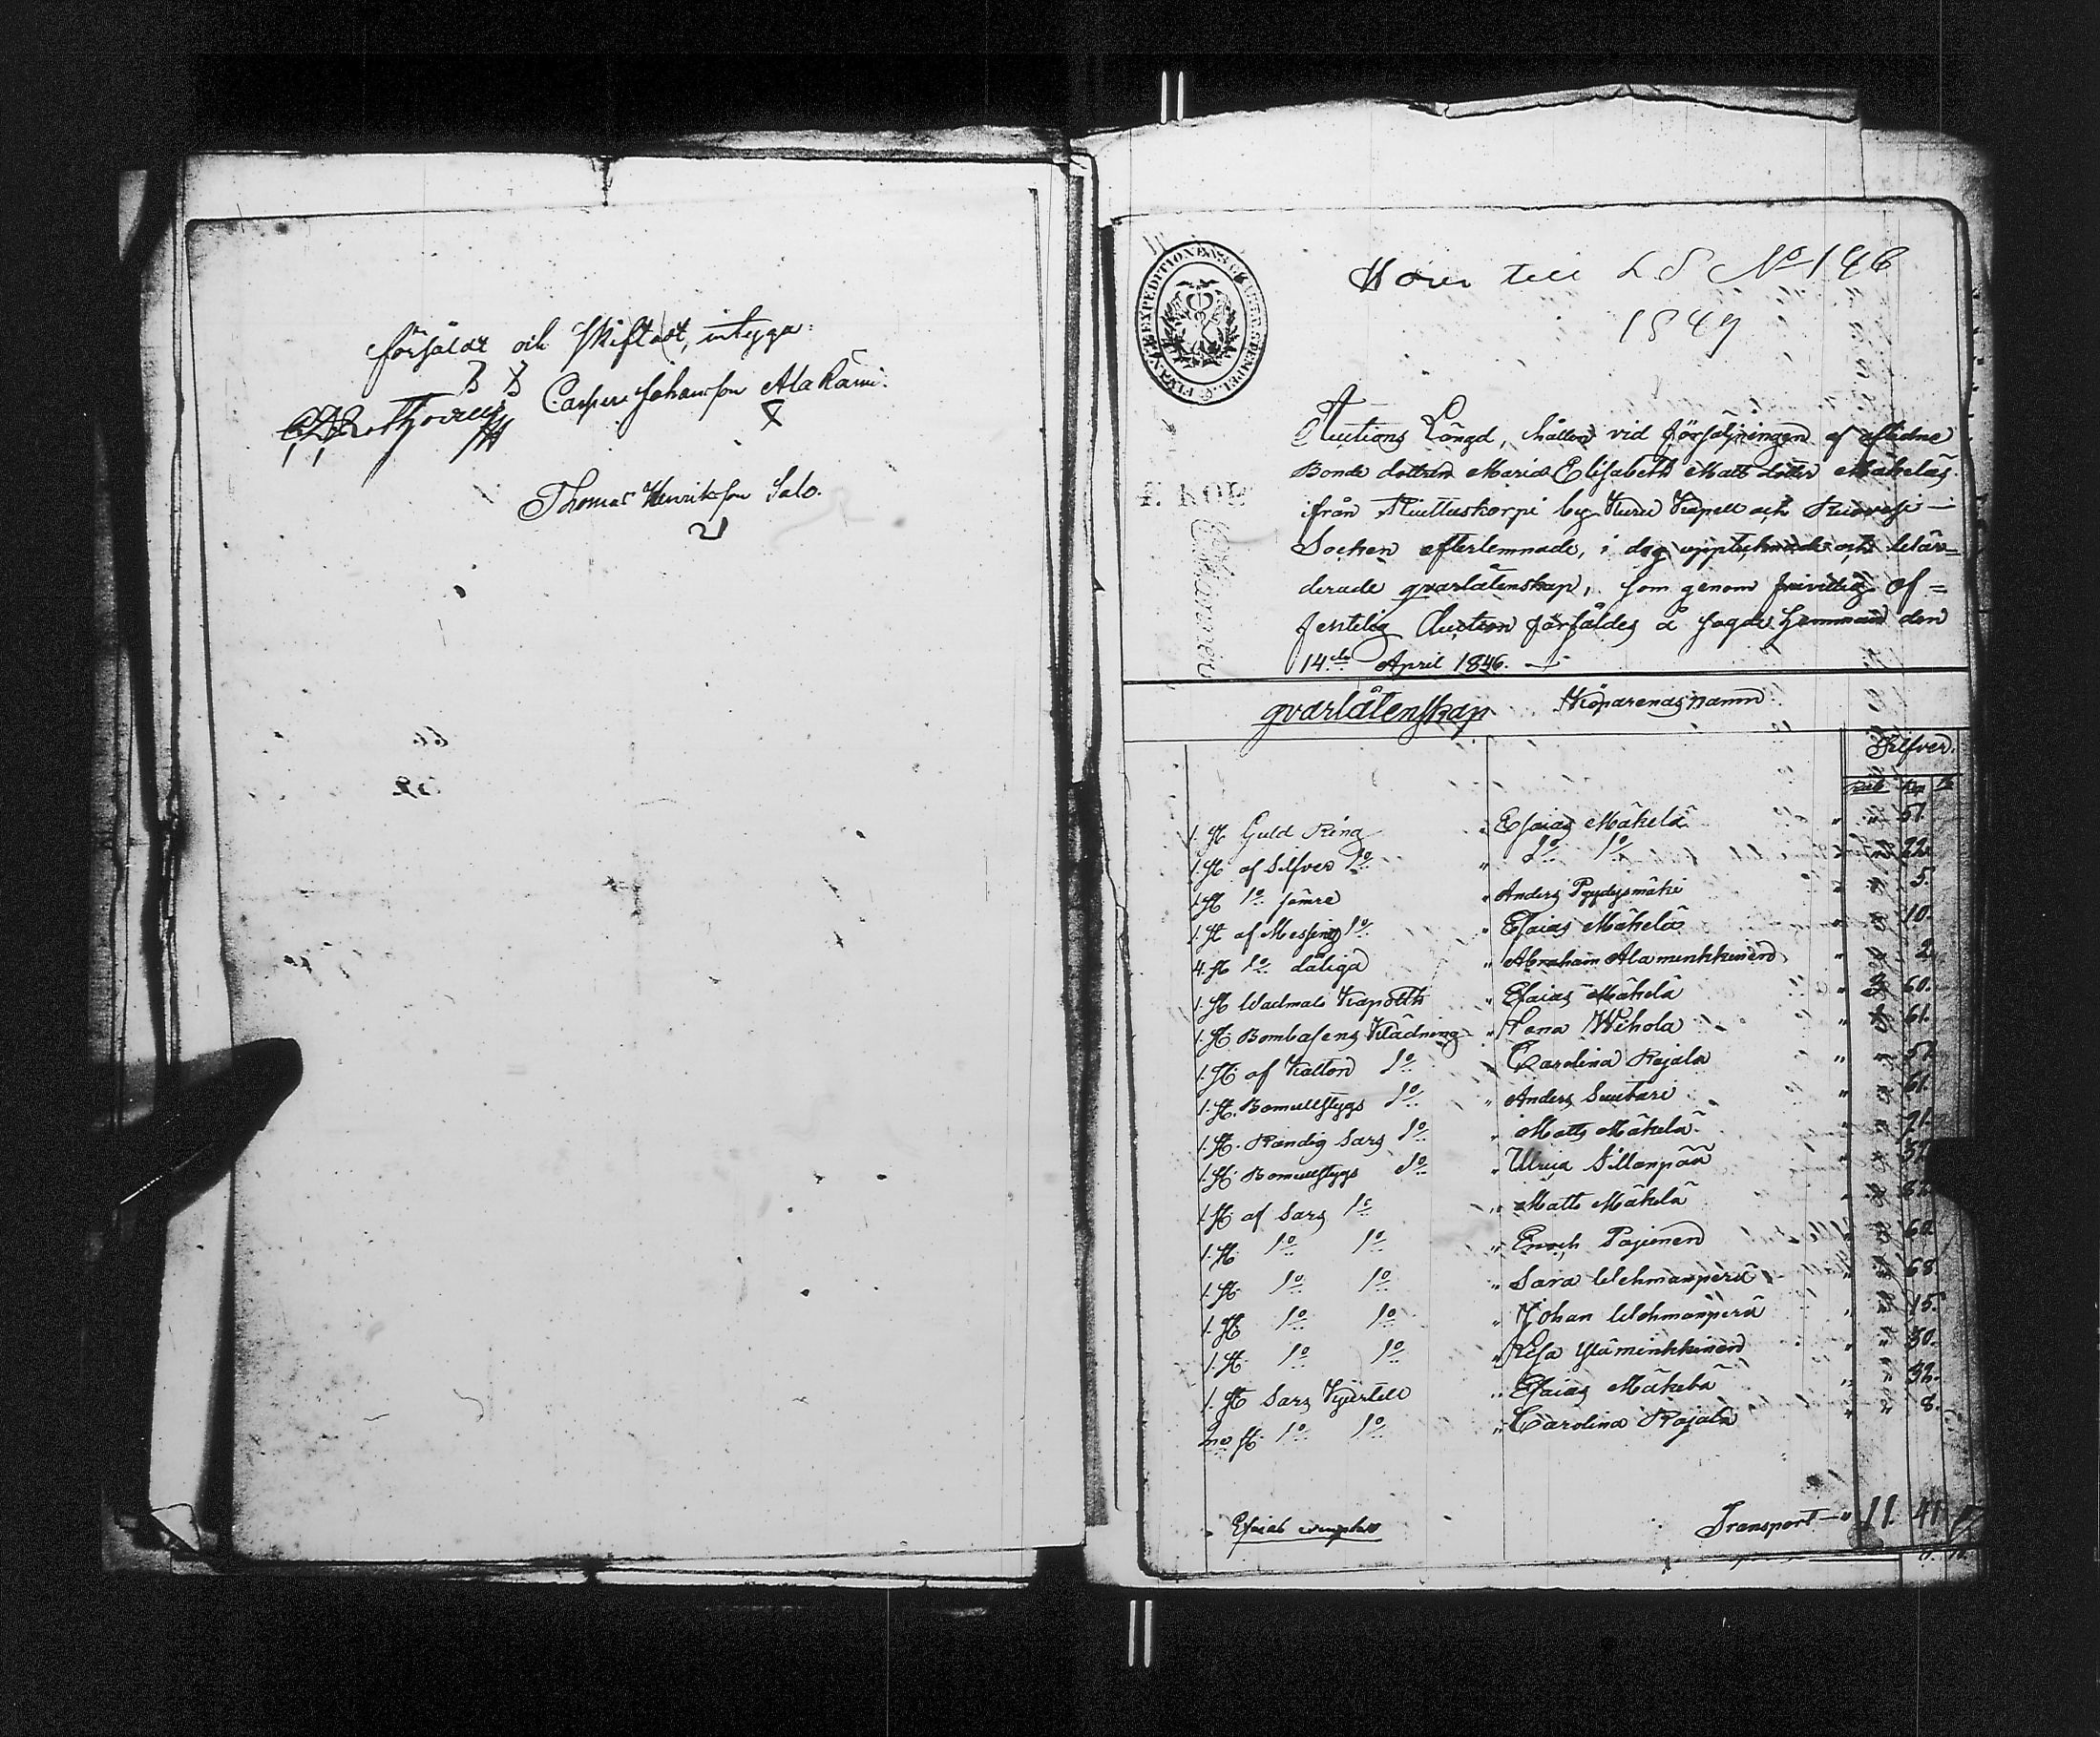 försåldt och skiftadt, intyga:
Casper Johansson Ala Rämi.
Thomas Henriksson Salo.
Hörer till L S No 146
1849
FINANCE EXPEDITIONENS CHARTÆ STEMPEL
Auctions Längd, hållen vid försäljningen af aflidne
Bonde dottren Maria Elisabeth Matts dotter Mäkeläs
från Riuttuskorpi by Kuru Kapell och Ruovesi
Socken efterlemnade, i dag upptecknade och wär=
derade qvarlåtenskap, som genom frivillig of=
fentelig Auction försåldes å sagde Hemman den
14de April 1846.
4. KOP
qvarlåtenskap Köparenas namn
Silfver.
Rub Kop
1. St Guld Ring " Esaias Mäkelä " " 51.
1. St af Silfver Do " Do Do " " 22.
1. St Do sämre " Anders Pyydysmäki " " 5.
1. St af Messing Do " Esaias Mäkelä " " 10.
4. St Do dåliga " Abraham Alaminkkinen " " 2.
1. St Wadmals Kapott " Esaias Mäkelä " 60.
1. St Bombasens Klädning " Lena Wihola " 61.
1. St af Katton Do " Carolina Rajala " " 57.
1. St. Bomullstygs Do " Anders Suutari " " 61.
1. St. Randig Sars Do " Matts Mäkelä " 71.
1. St Bomullstygs Do " Ulrica Sillanpää
1. St af Sars Do " Matts Mäkelä
1. St Do Do " Enoch Pajunen " 60.
1. St Do Do " Sara Wehmanperä " 68.
1. St Do Do " Johan Wehmanperä " " 15.
1. St Do Do " Lisa Yläminkkinen " " 30.
1. St Sars Kjurtell " Esaias Mäkelä " " 32.
1. St Do Do " Carolina Rajala " " 8.
Transport " 11. 41